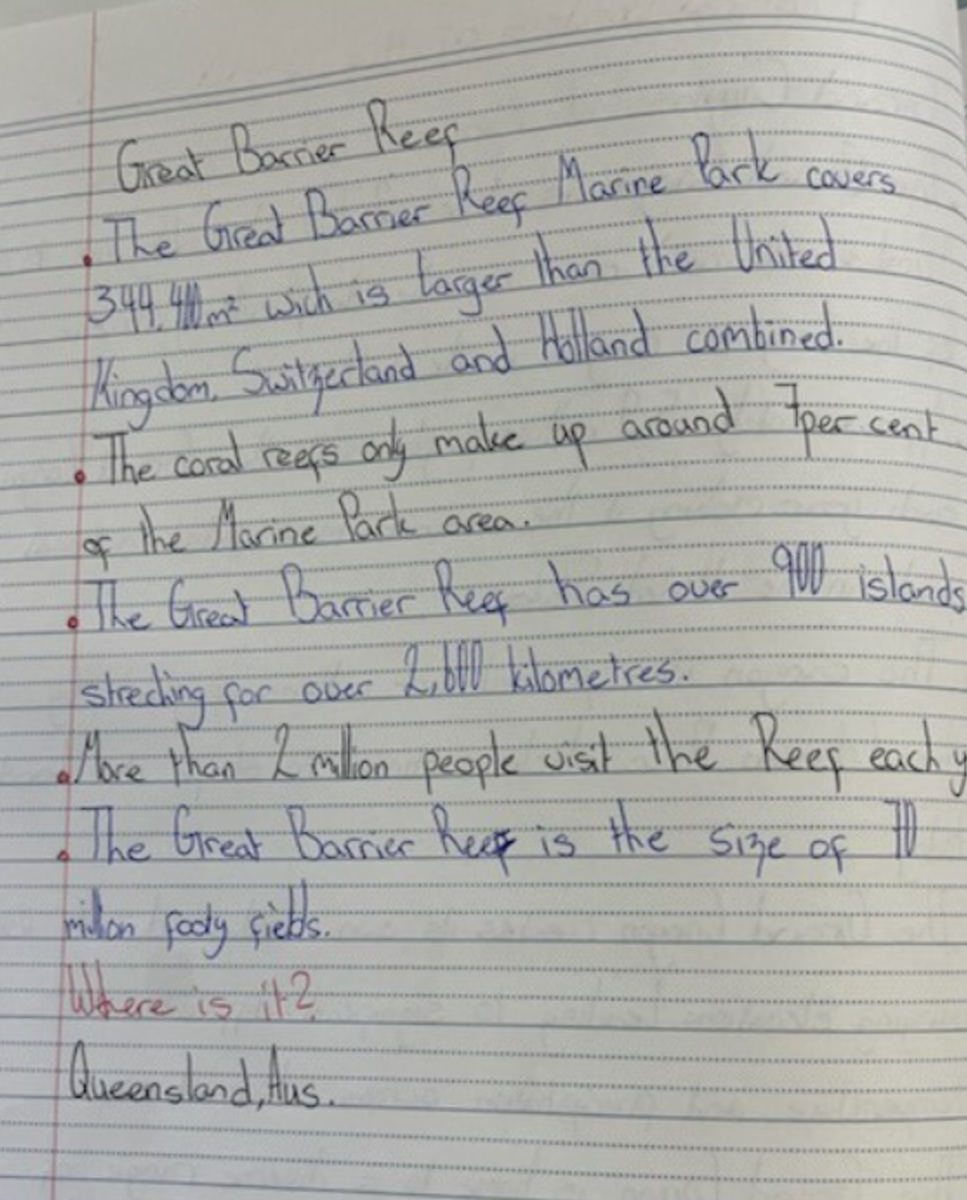 Great Barrier Reef
• The Great Barrier Reef Marine Park covers
344,400m² wich is larger than the United
Kingdom, Switzerland and Holland combined.
• The coral reefs only make up around 7per cent
of the Marine Park area.
• The Great Barrier Reef has over 900 islands
streching for over 2,600 kilometres.
• More than 2 million people visit the Reef each y
• The Great Barrier Reef is the size of 70
millon footy fields.
Where is it?
Queensland, Aus.